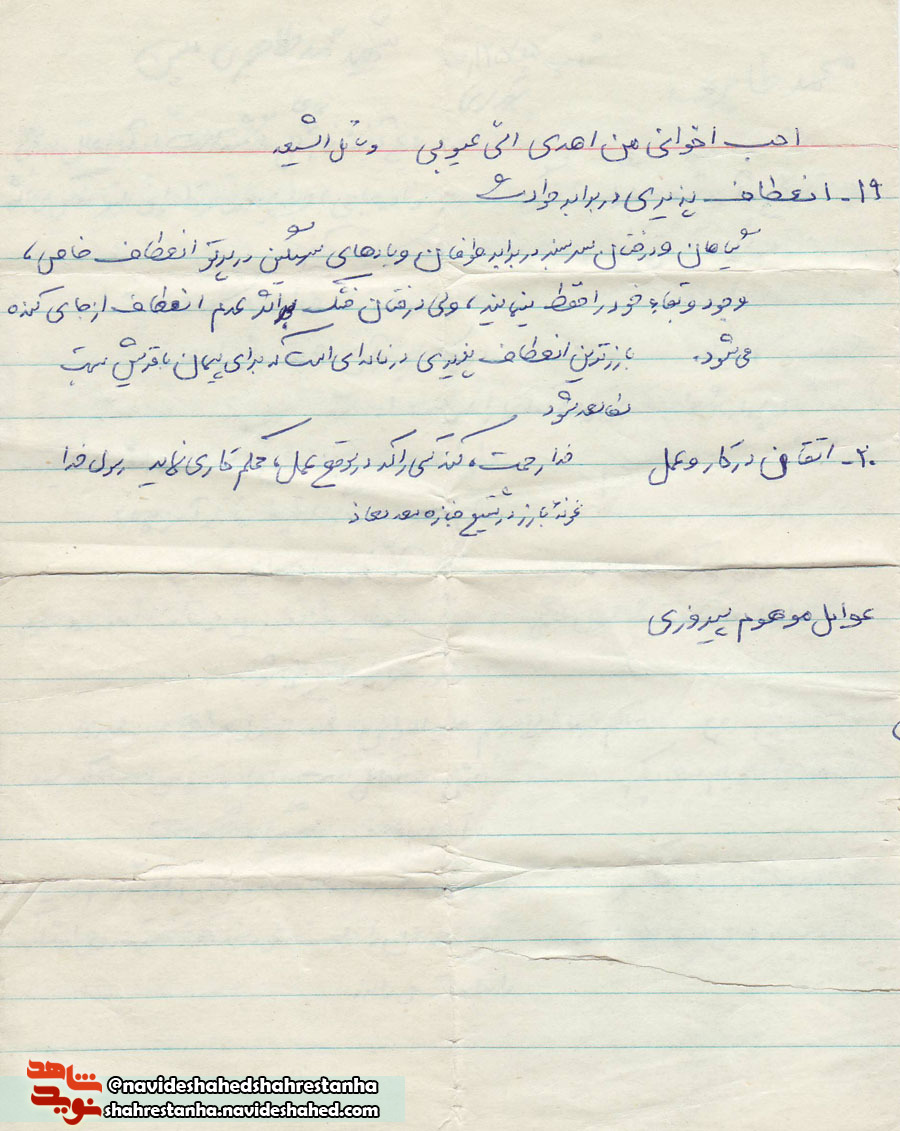 احب اخوانی من اهدی الیّ عیوبی وسائل الشیعه
۱۹- انعطاف پذیری در برابر حوادث
گیاهان و درختان سرسبز در برابر طوفان و بادهای سهمگین در پرتو انعطاف خاص،
وجود و بقاء خود را حفظ مینمایند، ولی درختان خشک بر اثر عدم انعطاف از جای کنده
می شود. بارزترین انعطاف پذیری در نامه ای است که برای پیمان با قریش
مطالعه شود
۲۰- اتقان در کار و عمل خدا رحمت کند کسی را که در موقع عمل، محکم کاری نماید رسول خدا
نمونۀ بارز در تشییع جنازه سعد معاذ
عوامل موهوم پیروزی
شاهد
نوید
@navideshahedshahrestanha
shahrestanha.navideshahed.com